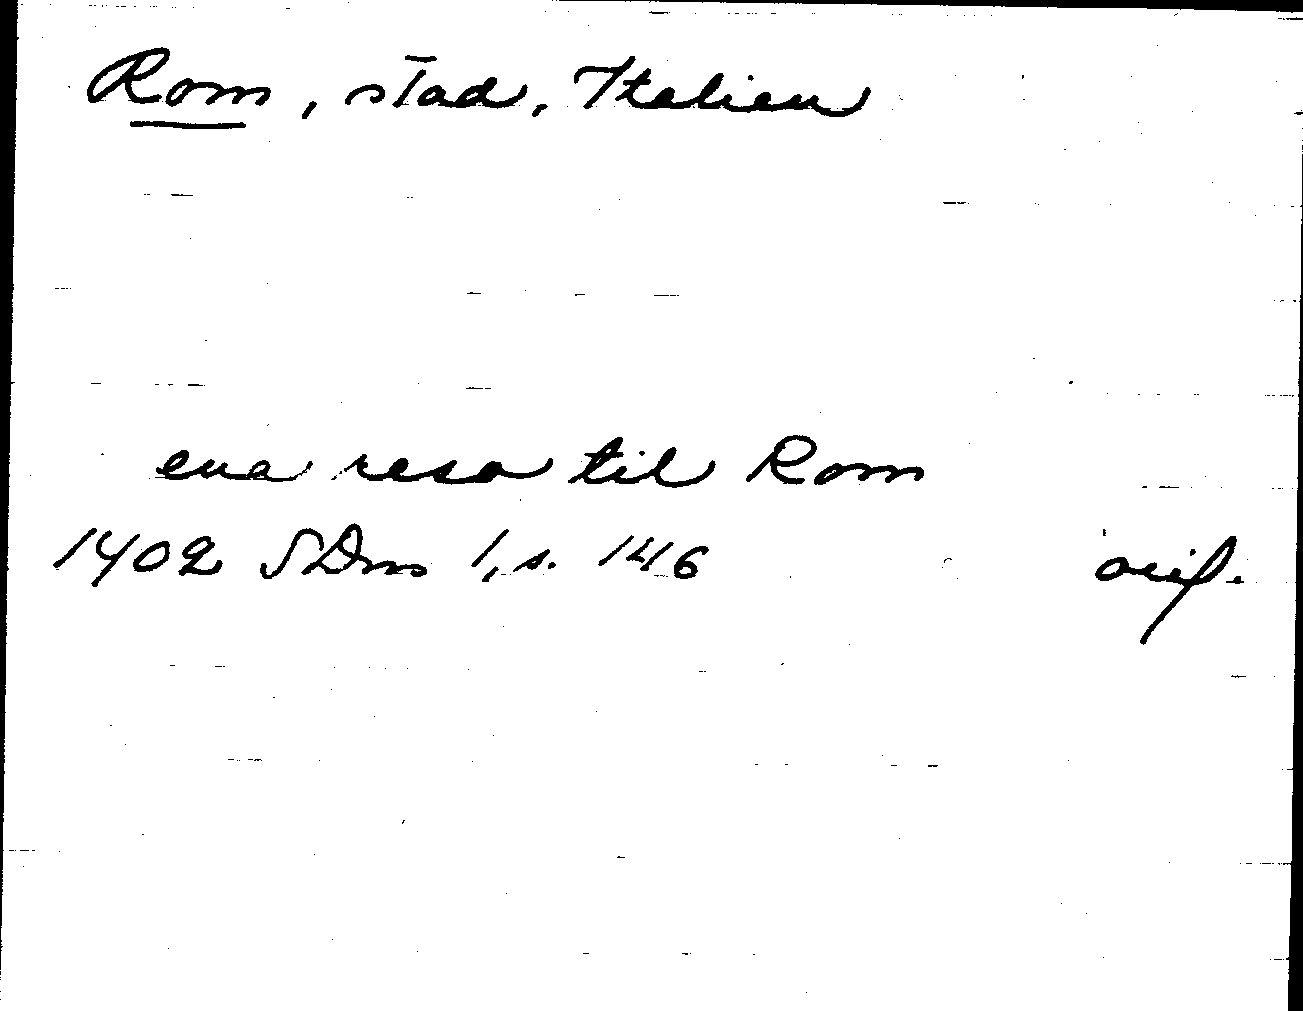 Rom, stad, Italien
ena resa til Rom
1402 SDns 1, s. 146 avif.